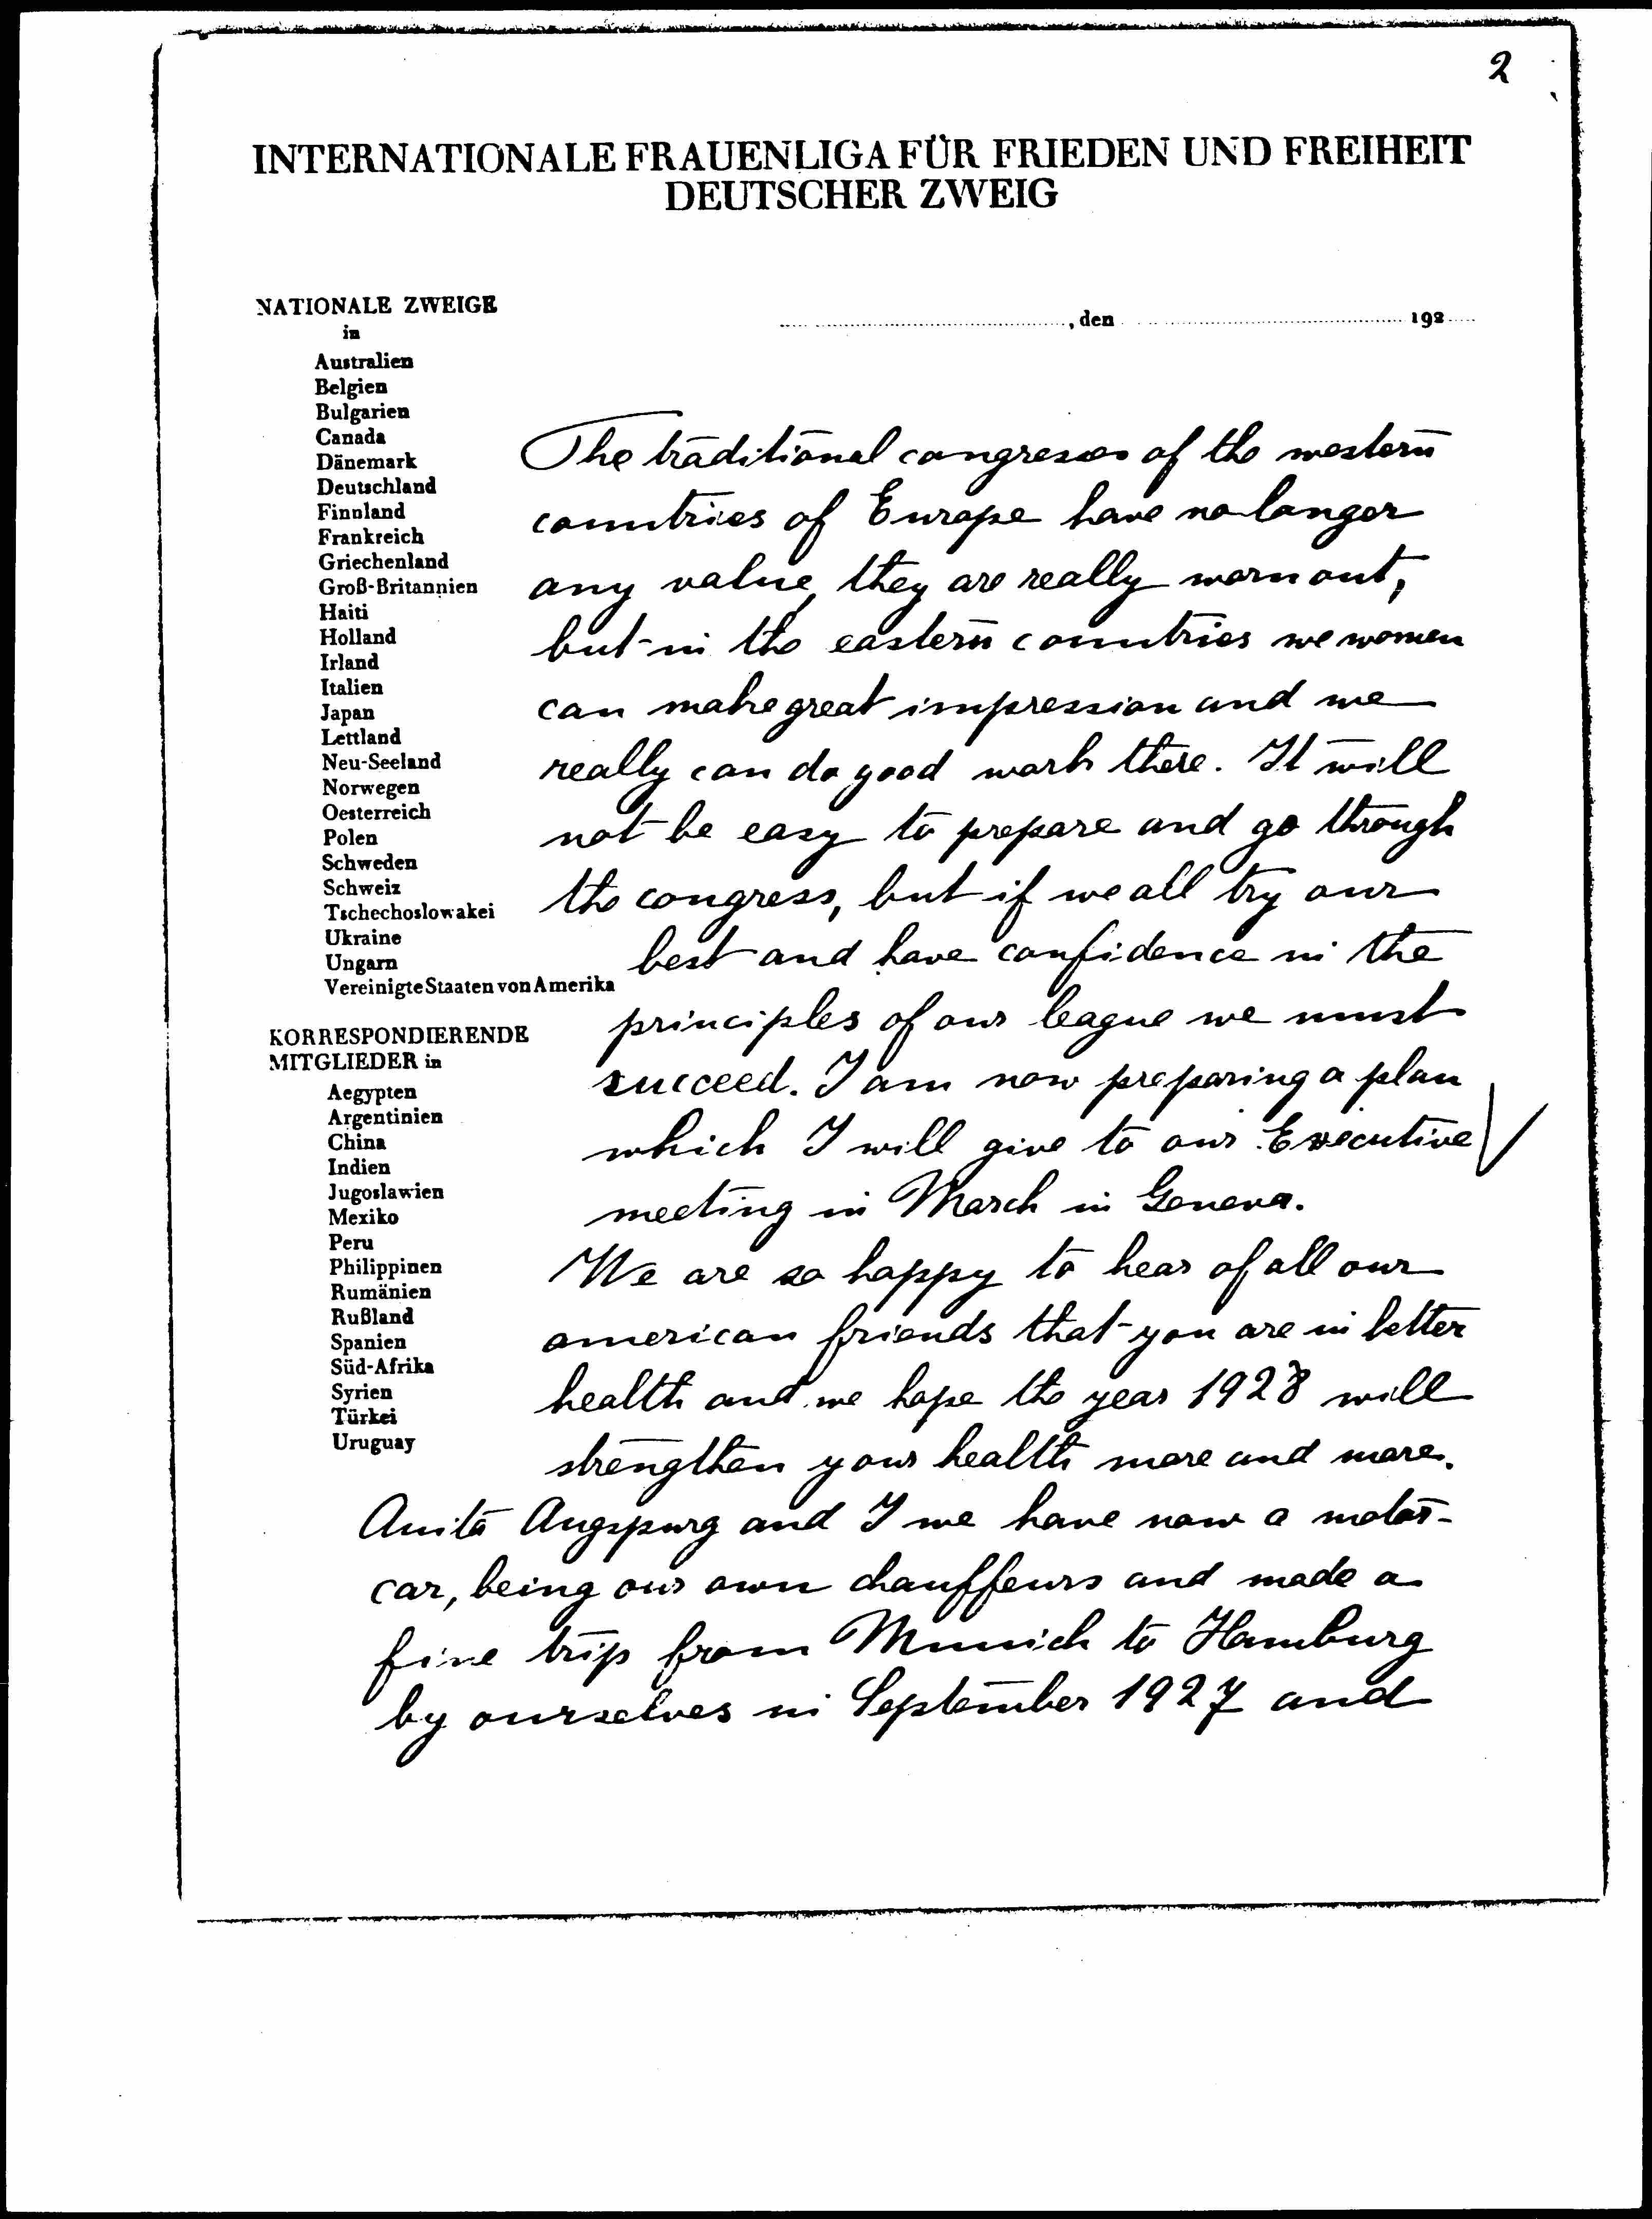 2
INTERNATIONALE FRAUENLIGA FÜR FRIEDEN UND FREIHEIT
DEUTSCHER ZWEIG
NATIONALE ZWEIGE
in
Australien
Belgien
Bulgarien
Canada
Dänemark
Deutschland
Finnland
Frankreich
Griechenland
Groß-Britannien
Haiti
Holland
Irland
Italien
Japan
Lettland
Neu-Seeland
Norwegen
Oesterreich
Polen
Schweden
Schweiz
Tschechoslowakei
Ukraine
Ungarn
Vereinigte Staaten von Amerika
KORRESPONDIERENDE
MITGLIEDER in
Aegypten
Argentinien
China
Indien
Jugoslawien
Mexiko
Peru
Philippinen
Rumänien
Rußland
Spanien
Süd-Afrika
Syrien
Türkei
Uruguay
, den 192
The traditional congresses of the western
countries of Europe have no longer
any value, they are really worn out,
but in the eastern countries we women
can make great impression and we
really can do good work there. It will
not be easy to prepare and go through
the congress, but if we all try our
best and have confidence in the
principles of our league we must
succeed. I am now preparing a plan
which I will give to our Executive
meeting in March in Geneva.
We are so happy to hear of all our
american friends that you are in better
health and we hope the year 1928 will
strengthen your health more and more.
Anita Augspurg and I we have now a motor-
car, being our own chauffeurs and made a
fine trip from Munich to Hamburg
by ourselves in September 1927 and